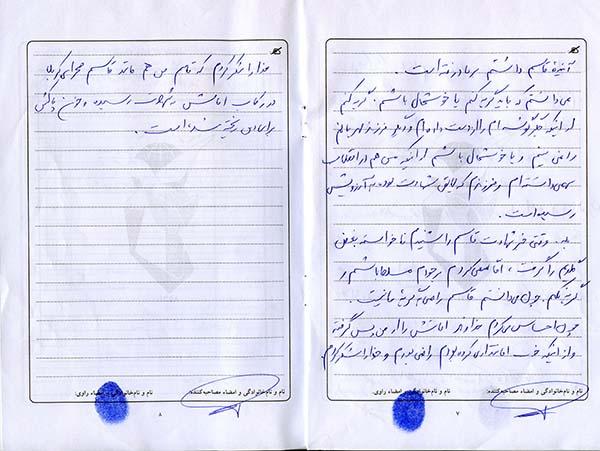 آنچه قاسم داشتم بر باد رفته است.
نمی‌دانستم که باید گریه کنم یا خوشحال باشم. گریه کنم
از اینکه جگرگوشه‌ام را از دست داده‌ام و دیگر فرزند مهربانم
را نمی بینم و یا خوشحال باشم از اینکه من هم در انقلاب
سهمی داشته‌ام و فرزندم که لایق شهادت بوده به آرزویش
رسیده است.
بله وقتی خبر شهادت قاسم را شنیدم ناخواسته بغض
گلویم را گرفت، اما سعی کردم بر خودم مسلط باشم و
گریه نکنم. چون می‌دانستم قاسم راضی به گریهٔ ما نیست.
چون احساس می‌کردم خداوند امانتش را از من پس گرفته
و از اینکه خوب امانتداری کرده بودم راضی بودم و خدا را شکر کردم.
نام و نام‌خانوادگی و امضاء مصاحبه‌کننده: نام و نام‌خانوادگی و امضاء راوی:
۷
خدا را شکر کردم که قاسم من هم مانند قاسم صحرای کربلا
در رکاب امامش به شهادت رسیده و خون پاکش
برای دین ریخته شده است.
نام و نام‌خانوادگی و امضاء مصاحبه‌کننده: نام و نام‌خانوادگی و امضاء راوی:
۸